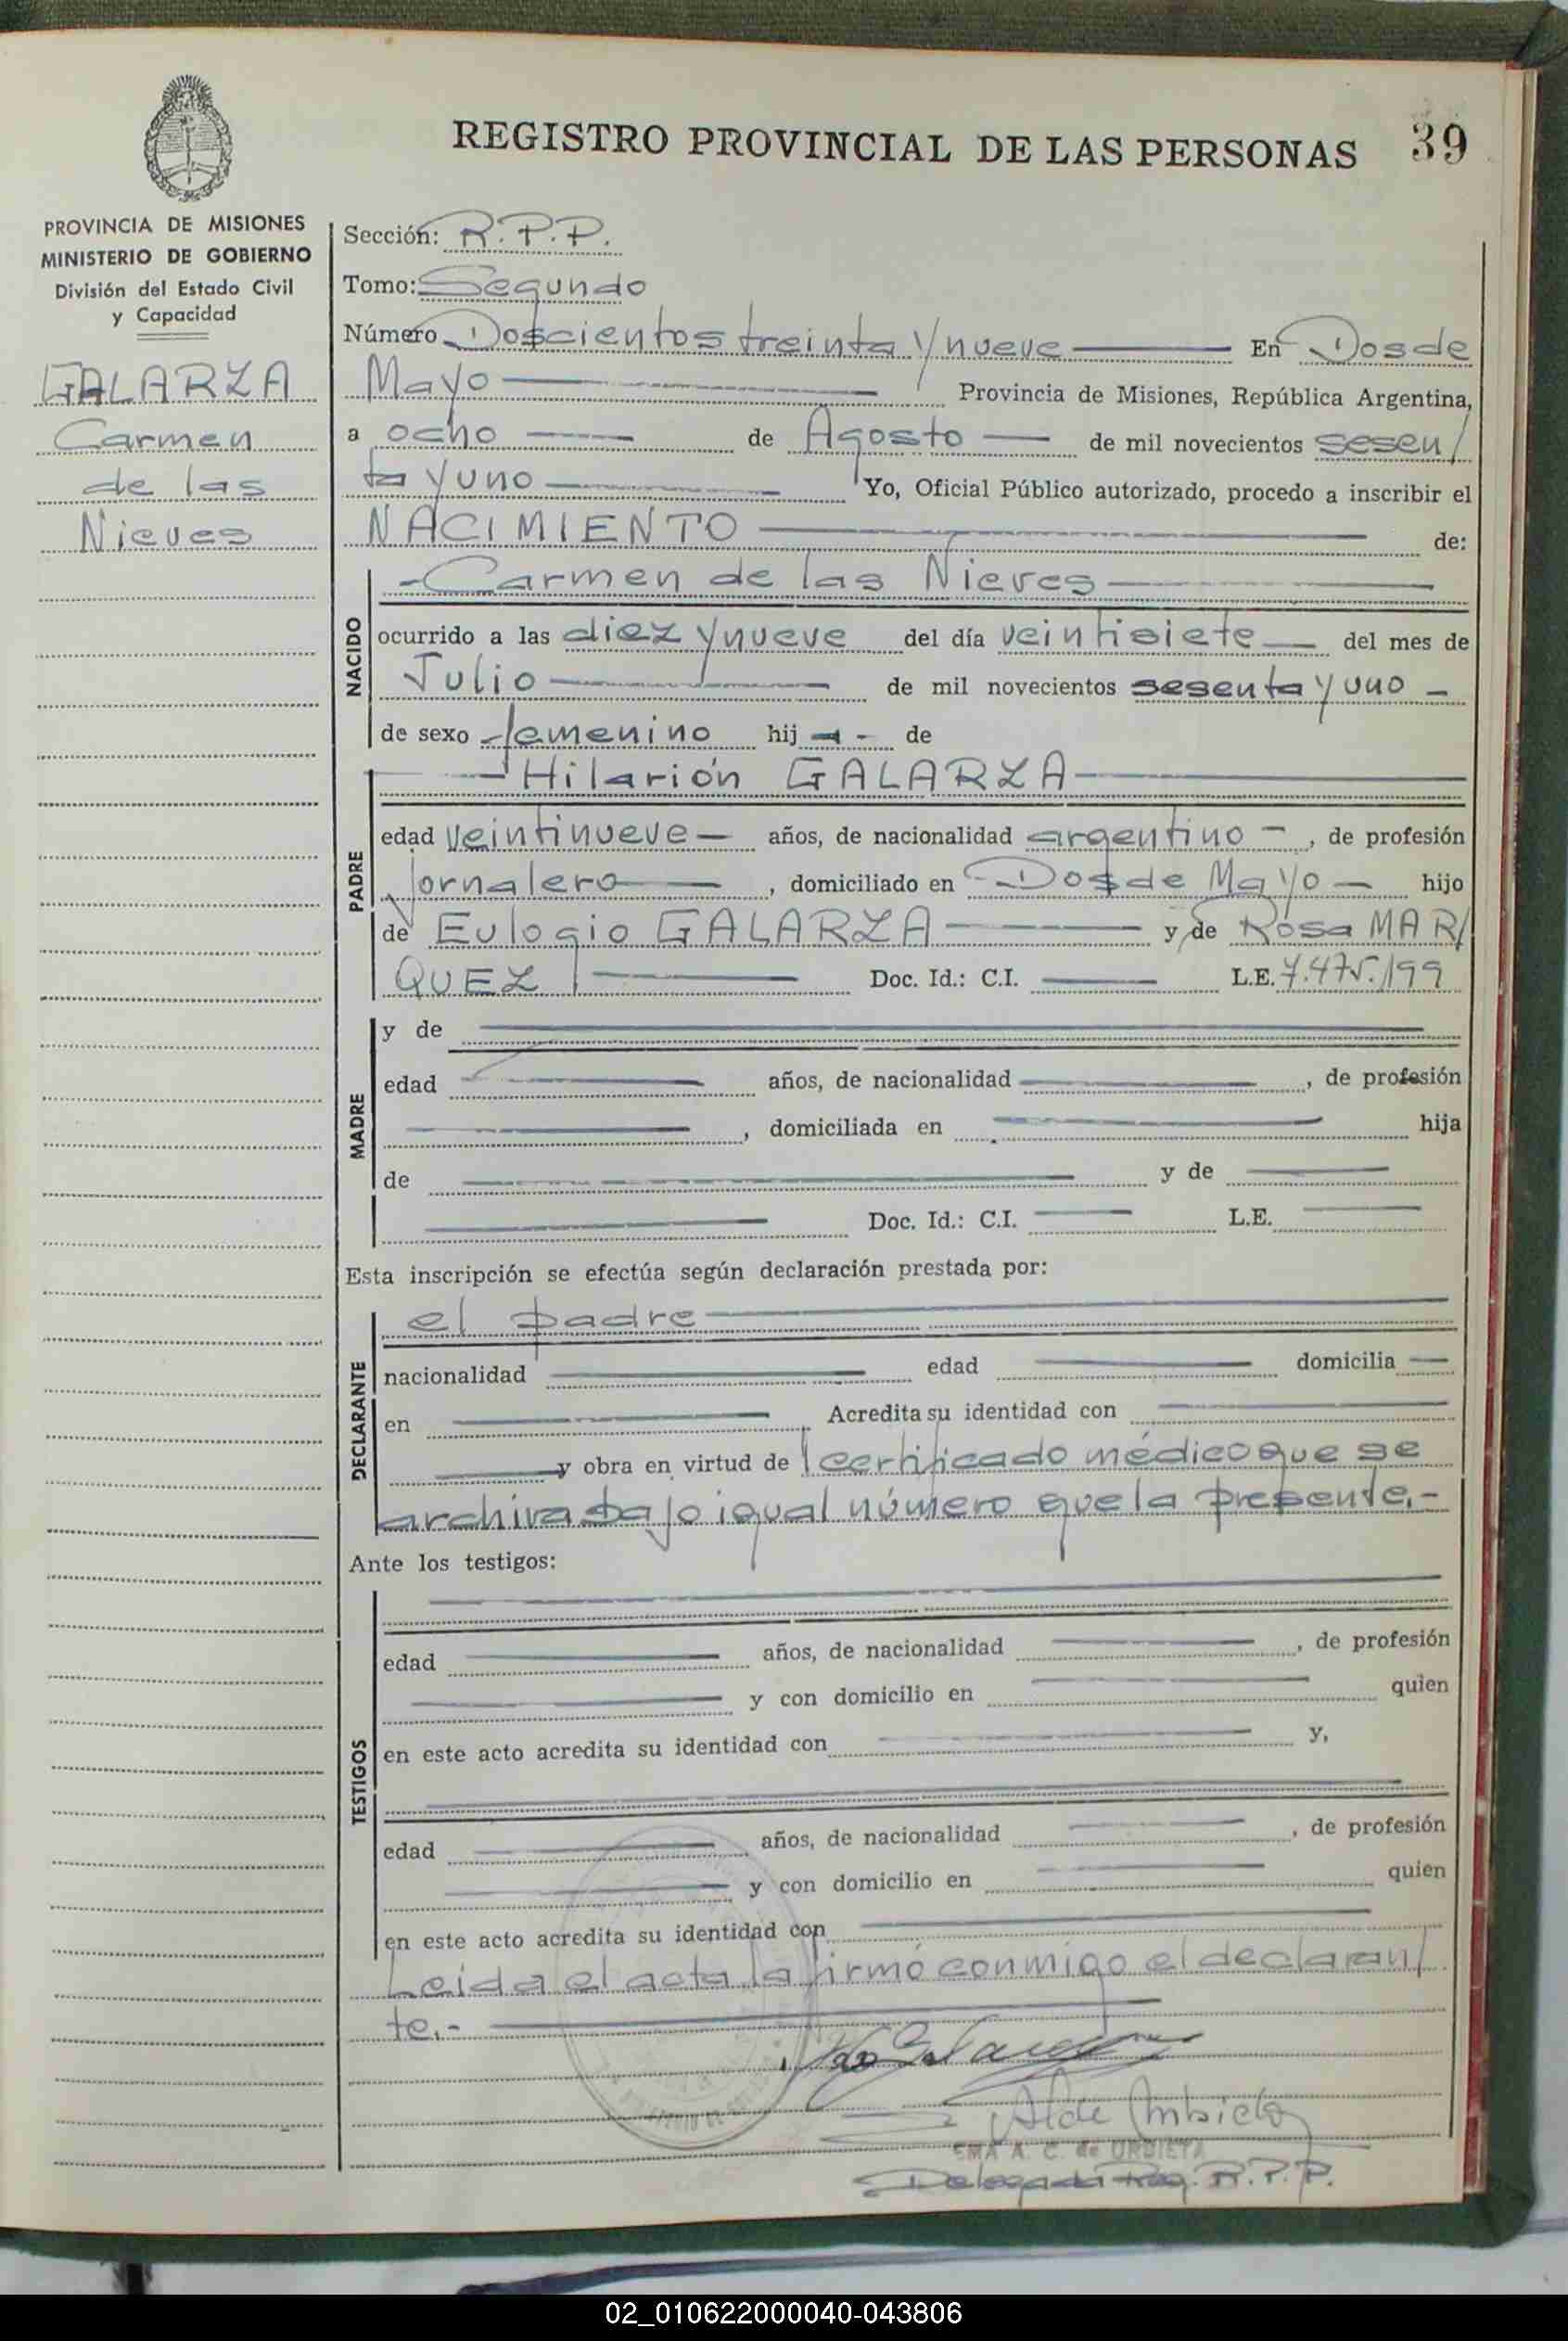 REGISTRO PROVINCIAL DE LAS PERSONAS 39
PROVINCIA DE MISIONES
MINISTERIO DE GOBIERNO
División del Estado Civil
y Capacidad
GALARZA
Carmen
de las
Nieves
Sección: R.P.P.
Tomo: Segundo
Número Doscientos treinta y nueve En Dos de
Mayo Provincia de Misiones, República Argentina,
a ocho de Agosto de mil novecientos sesen/
ta y uno Yo, Oficial Público autorizado, procedo a inscribir el
NACIMIENTO de:
NACIDO
Carmen de las Nieves
ocurrido a las diez y nueve del día veintisiete del mes de
Julio de mil novecientos sesenta y uno -
de sexo femenino hij - de
PADRE
Hilarión GALARZA
edad veintinueve años, de nacionalidad argentino -, de profesión
jornalero, domiciliado en Dos de Mayo hijo
de Eulogio GALARZA y de Rosa MAR/
QUEZ Doc. Id.: C.I. L.E. 7.475.199
MADRE
y de
edad años, de nacionalidad , de profesión
, domiciliada en hija
de y de
Doc. Id.: C.I. L.E.
Esta inscripción se efectúa según declaración prestada por:
DECLARANTE
el padre
nacionalidad edad domicilia
en Acredita su identidad con
y obra en virtud de certificado médico que se
archiva bajo igual número que la presente.-
Ante los testigos:
TESTIGOS
edad años, de nacionalidad , de profesión
y con domicilio en quien
en este acto acredita su identidad con y,
edad años, de nacionalidad , de profesión
y con domicilio en quien
en este acto acredita su identidad con
Leida el acta la firmó conmigo el declaran/
te.-
EMA A. C. de URBIETA
Delegada Reg. R.P.P.
02_010622000040-043806